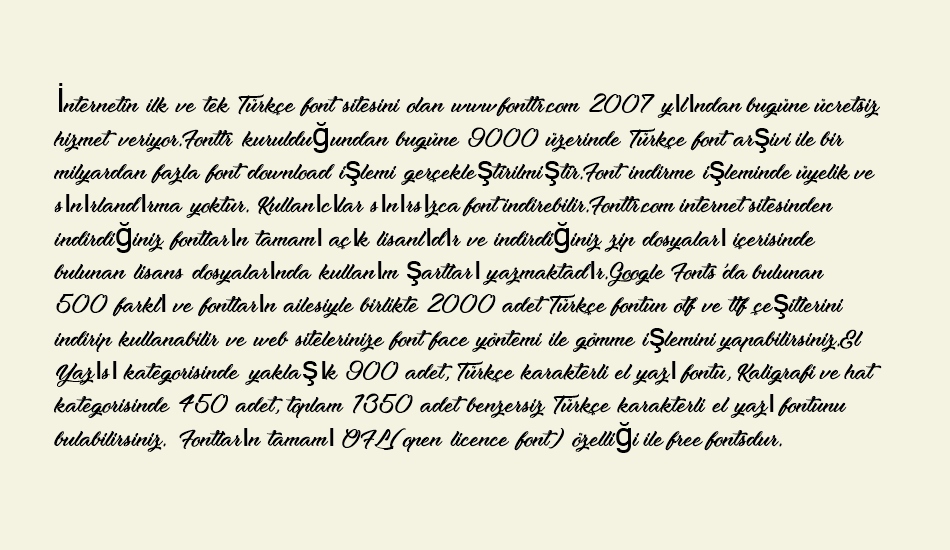 İnternetin ilk ve tek Türkçe font sitesini olan www.fonttr.com 2007 yılından bugüne ücretsiz
hizmet veriyor.Fonttr kurulduğundan bugüne 9000 üzerinde Türkçe font arşivi ile bir
milyardan fazla font download işlemi gerçekleştirilmiştir.Font indirme işleminde üyelik ve
sınırlandırma yoktur. Kullanıcılar sınırsızca font indirebilir.Fonttr.com internet sitesinden
indirdiğiniz fontların tamamı açık lisanlıdır ve indirdiğiniz zip dosyaları içerisinde
bulunan lisans dosyalarında kullanım şartları yazmaktadır.Google Fonts 'da bulunan
500 farklı ve fontların ailesiyle birlikte 2000 adet Türkçe fontun otf ve ttf çeşitlerini
indirip kullanabilir ve web sitelerinize font face yöntemi ile gömme işlemini yapabilirsiniz.El
Yazısı kategorisinde yaklaşık 900 adet, Türkçe karakterli el yazı fontu, Kaligrafi ve hat
kategorisinde 450 adet, toplam 1350 adet benzersiz Türkçe karakterli el yazı fontunu
bulabilirsiniz. Fontların tamamı OFL(open licence font) özelliği ile free fontsdur.